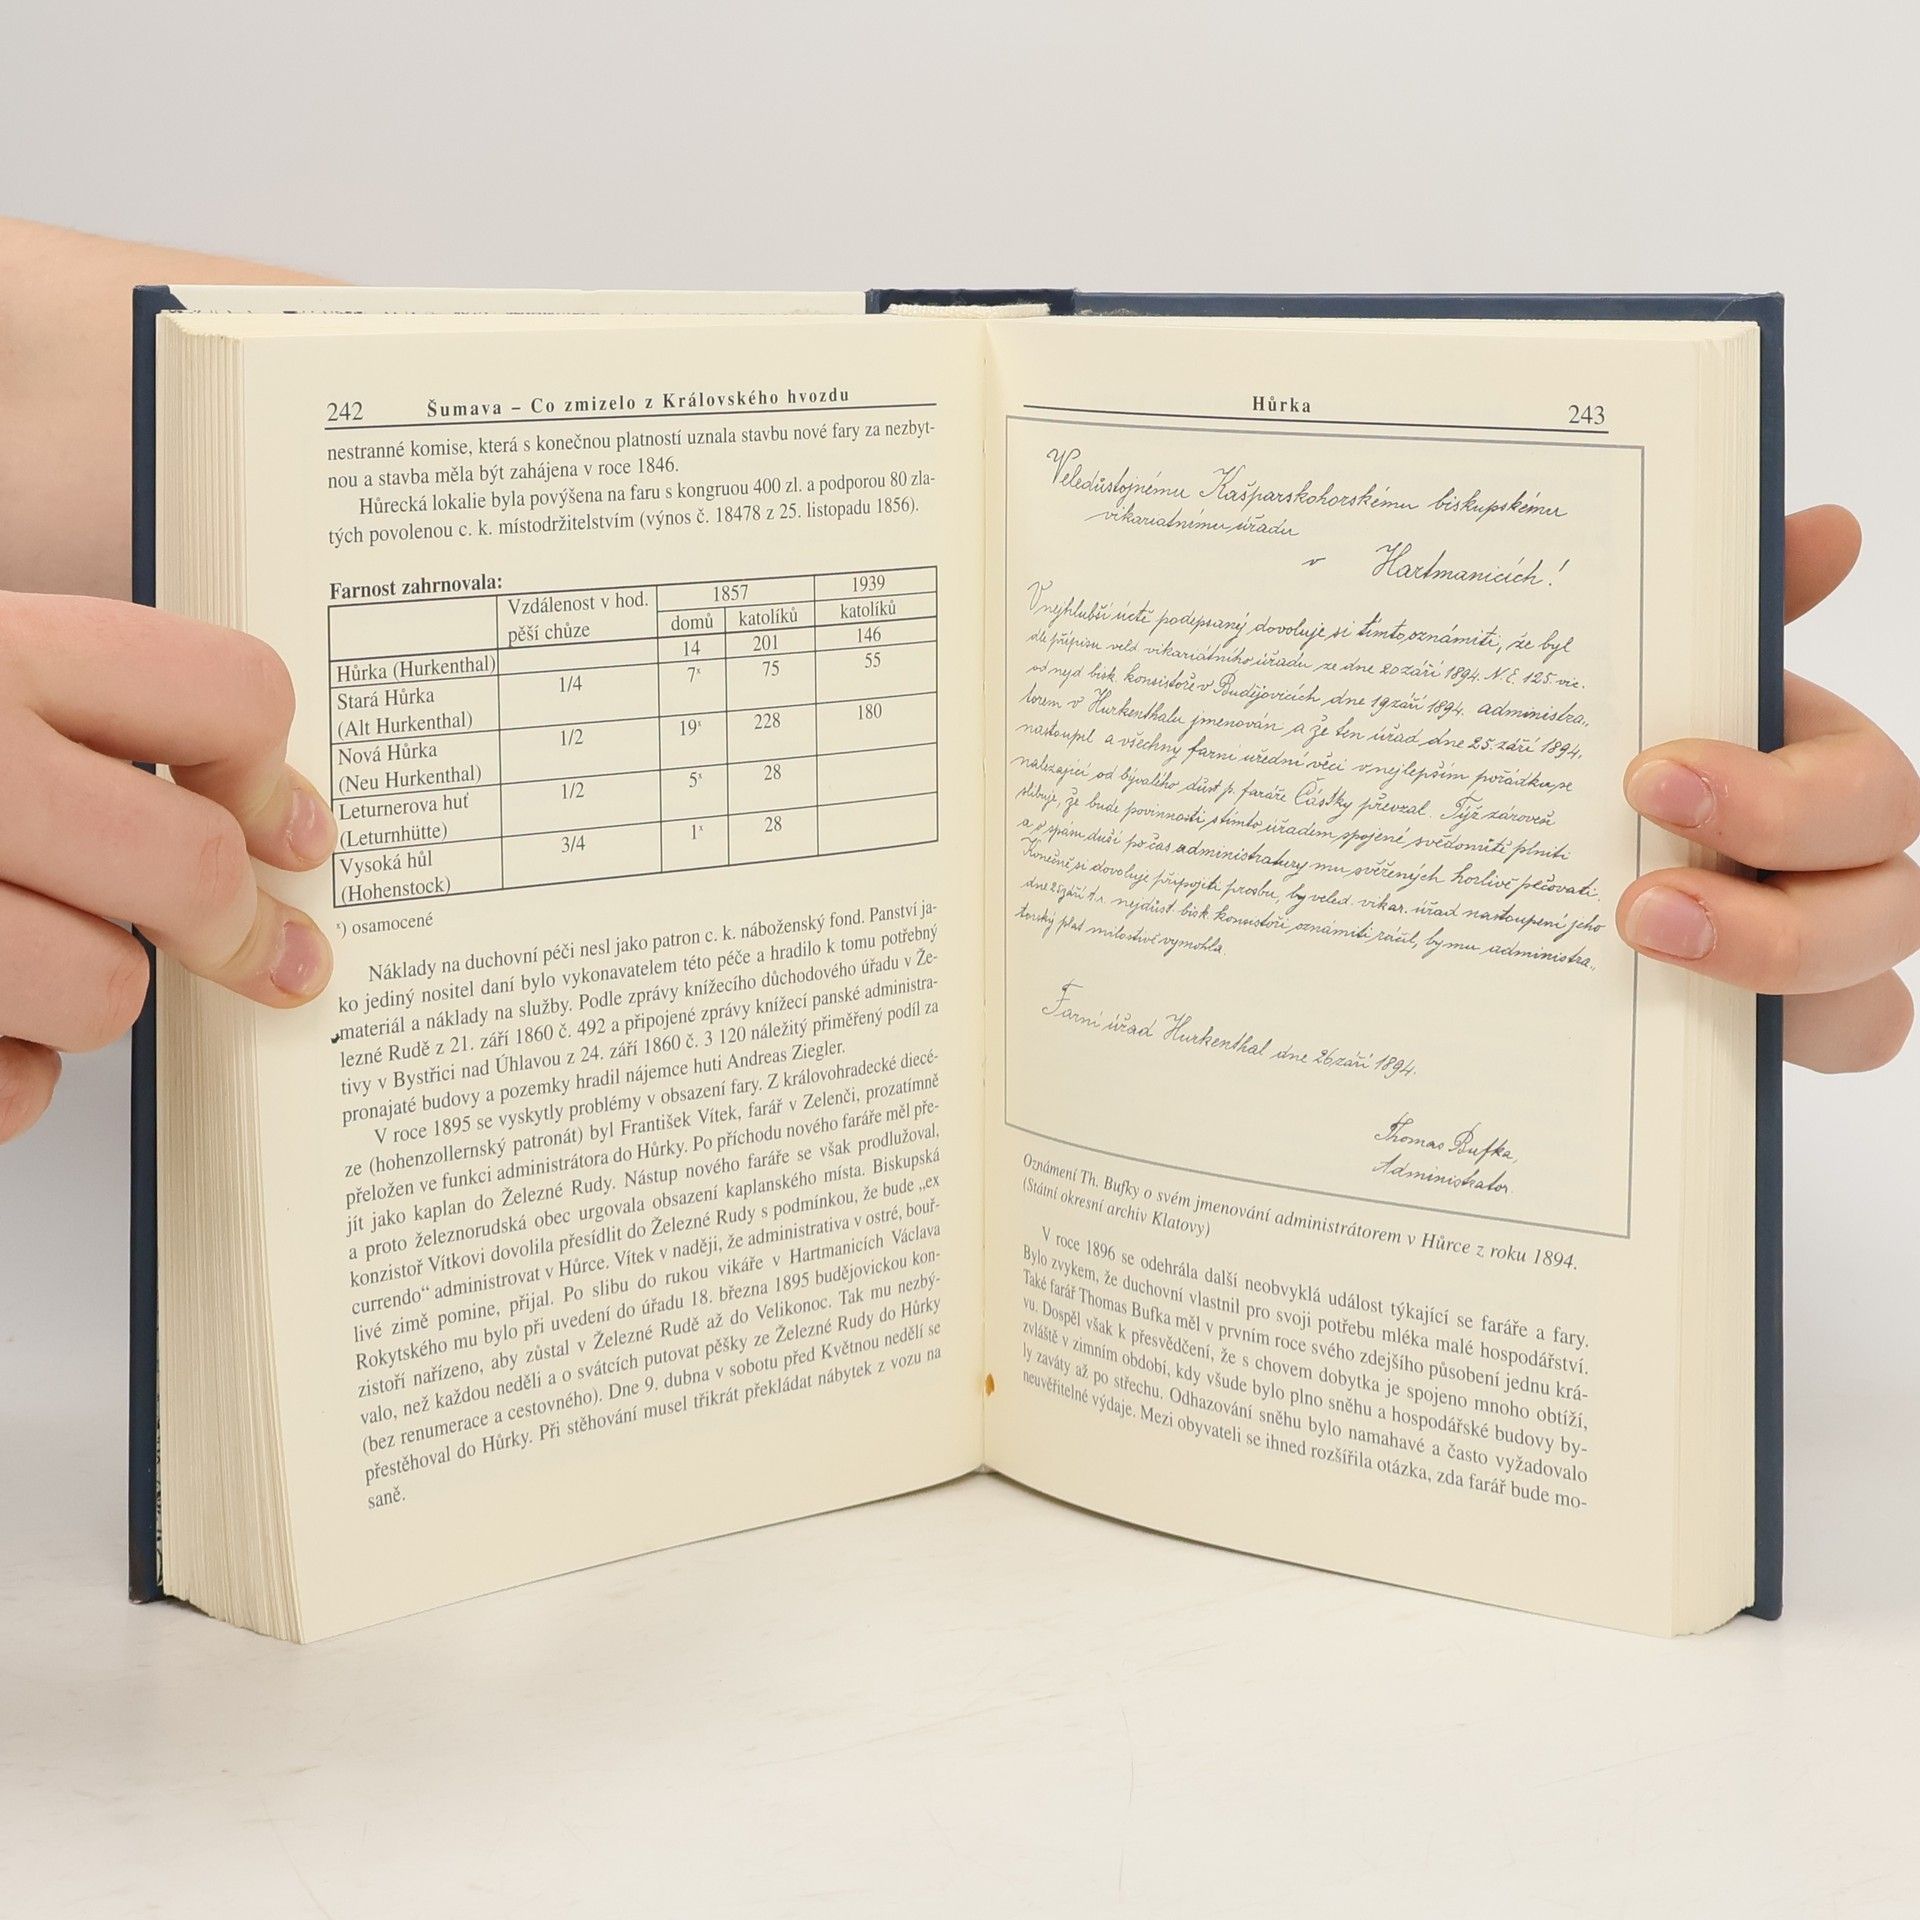 242 Šumava – Co zmizelo z Královského hvozdu
nestranné komise, která s konečnou platností uznala stavbu nové fary za nezbyt-
nou a stavba měla být zahájena v roce 1846.
Hůrecká lokalie byla povýšena na faru s kongruou 400 zl. a podporou 80 zla-
tých povolenou c. k. místodržitelstvím (výnos č. 18478 z 25. listopadu 1856).
Farnost zahrnovala:
Vzdálenost v hod. 1857 1939
pěší chůze domů katolíků katolíků
Hůrka (Hurkenthal) 14 201 146
Stará Hůrka 1/4 7x 75 55
(Alt Hurkenthal)
Nová Hůrka 1/2 19x 228 180
(Neu Hurkenthal)
Leturnerova huť 1/2 5x 28
(Leturnhütte)
Vysoká hůl 3/4 1x 28
(Hohenstock)
x) osamocené
Náklady na duchovní péči nesl jako patron c. k. náboženský fond. Panství ja-
ko jediný nositel daní bylo vykonavatelem této péče a hradilo k tomu potřebný
materiál a náklady na služby. Podle zprávy knížecího důchodového úřadu v Že-
lezné Rudě z 21. září 1860 č. 492 a připojené zprávy knížecí panské administra-
tivy v Bystřici nad Úhlavou z 24. září 1860 č. 3 120 náležitý přiměřený podíl za
pronajaté budovy a pozemky hradil nájemce huti Andreas Ziegler.
V roce 1895 se vyskytly problémy v obsazení fary. Z královohradecké diecé-
ze (hohenzollernský patronát) byl František Vítek, farář v Zelenči, prozatímně
přeložen ve funkci administrátora do Hůrky. Po příchodu nového faráře měl pře-
jít jako kaplan do Železné Rudy. Nástup nového faráře se však prodlužoval,
a proto železnorudská obec urgovala obsazení kaplanského místa. Biskupská
konzistoř Vítkovi dovolila přesídlit do Železné Rudy s podmínkou, že bude „ex
currendo“ administrovat v Hůrce. Vítek v naději, že administrativa v ostré, bouř-
livé zimě pomine, přijal. Po slibu do rukou vikáře v Hartmanicích Václava
Rokytského mu bylo při uvedení do úřadu 18. března 1895 budějovickou kon-
zistoří nařízeno, aby zůstal v Železné Rudě až do Velikonoc. Tak mu nezbý-
valo, než každou neděli a o svátcích putovat pěšky ze Železné Rudy do Hůrky
(bez renumerace a cestovného). Dne 9. dubna v sobotu před Květnou nedělí se
přestěhoval do Hůrky. Při stěhování musel třikrát překládat nábytek z vozu na
saně.
Hůrka 243
Veledůstojnému Kašparskohorskému biskupskému
vikariatnímu úřadu
v Hartmanicích!
V nejhlubší úctě podepsaný dovoluje si tímto oznámiti, že byl
dle přípisu veld vikariátního úřadu ze dne 20 září 1894. N.E. 125. vic.
od nejd bisk. konsistoře v Budějovicích dne 19 září 1894. administra„
torem v Hurkenthalu jmenován a že ten úřad dne 25. září 1894.
nastoupil a všechny farní úřední věci v nejlepším pořádku se
nalezající od bývalého důst p. faráře Částky převzal. Týž zároveň
slibuje, že bude povinnosti s tímto úřadem spojené svědomitě plniti
a o spásu duší po čas administratury mu svěřených horlivě pečovati.
Konečně si dovoluje připojiti prosbu, by veled. vikar. úřad nastoupení jeho
dne 25 září t.r. nejdůst. bisk. konsistoři oznámiti ráčil, by mu administra„
torský plat milostivě vymohla.
Farní úřad Hurkenthal dne 26 září 1894.
Thomas Bufka,
Administrator.
Oznámení Th. Bufky o svém jmenování administrátorem v Hůrce z roku 1894.
(Státní okresní archiv Klatovy)
V roce 1896 se odehrála další neobvyklá událost týkající se faráře a fary.
Bylo zvykem, že duchovní vlastnil pro svoji potřebu mléka malé hospodářství.
Také farář Thomas Bufka měl v prvním roce svého zdejšího působení jednu krá-
vu. Dospěl však k přesvědčení, že s chovem dobytka je spojeno mnoho obtíží,
zvláště v zimním období, kdy všude bylo plno sněhu a hospodářské budovy by-
ly zaváty až po střechu. Odhazování sněhu bylo namahavé a často vyžadovalo
neuvěřitelné výdaje. Mezi obyvateli se ihned rozšířila otázka, zda farář bude mo-